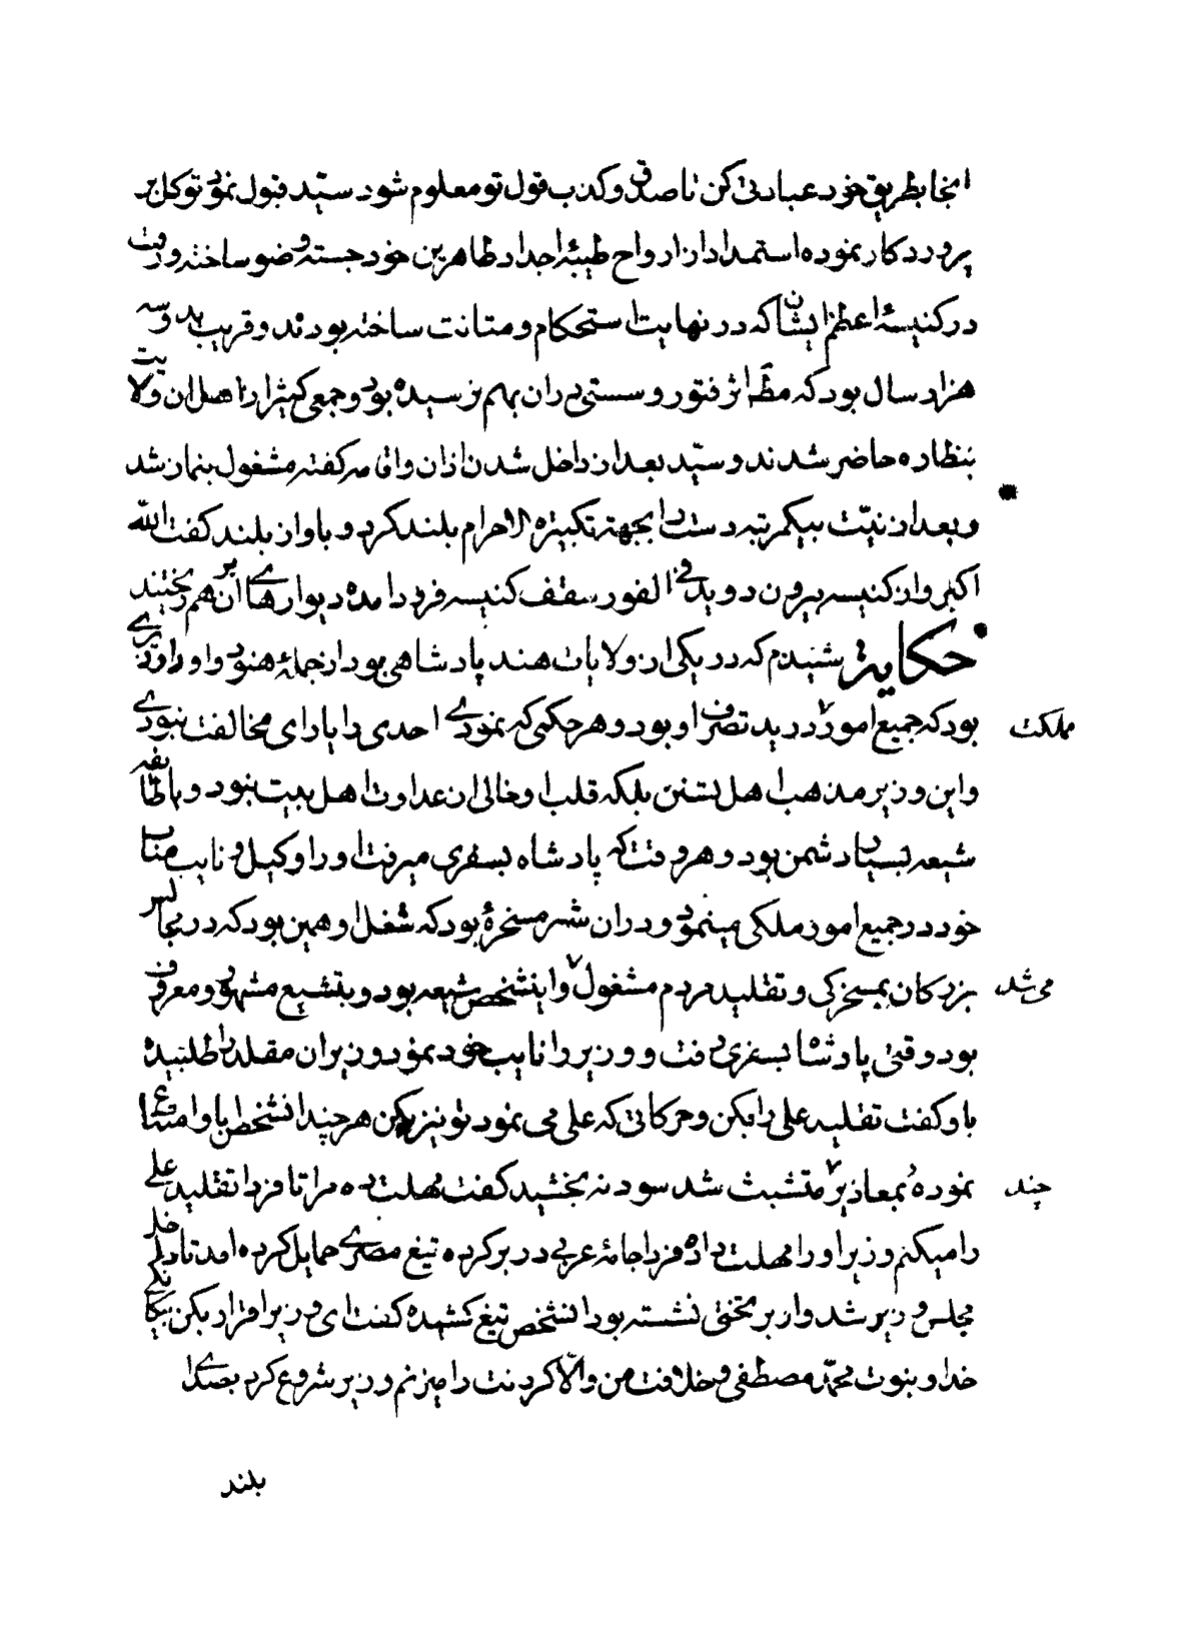 انجا بطریق خود عبادتی کن تا صدق و کذب قول تو معلوم شود سیّد قبول نموده توکل بر
پروردکار نموده استمداد از ارواح طیبهٔ اجداد طاهرین خود جسته وضو ساخته و رفت
در کنیسهٔ اعظم ایشان که در نهایت استحکام و متانت ساخته بودند و قریب بدو سه
هزار سال بود که مطلقا اثر فتور و سستی بدان بهم نرسیده بود و جمعی کثیر از اهل ان ولایت
بنظاره حاضر شدند و سیّد بعد از داخل شدن اذان و اقامه کفته مشغول بنماز شد
و بعد از نیّت بیکمرتبه دست را بجهة تکبیرة الاحرام بلند کرد و باواز بلند کفت الله
اکبر و از کنیسه بیرون دوید فی الفور سقف کنیسه فرود امده دیوارهای ان بر هم ریختند
حکایة شنیدم که در یکی از ولایات هند پادشاهی بود از جملهٔ هنود و او را وزیری
بود که جمیع امور مملکت در ید تصرف او بود و هر حکمی که نمودی احدی را یارای مخالفت نبودی
و این وزیر مذهب اهل تسنن بلکه قلب او خالی از عداوت اهل بیت نبود و با طایفه
شیعه بسیار دشمن بود و هر وقت که پادشاه بسفری میرفت او را وکیل و نایب مناب
خود در جمیع امور ملکی مینمود و در ان شهر مسخرهٔ بود که شغل او همین بود که در مجالس
بزرکان بمسخرکی و تقلید مردم مشغول می شد و اینشخص شیعه بود و بتشیع مشهور و معروف
بود وقتی پادشاه بسفری رفت و وزیر را نایب خود نمود وزیر ان مقلد را طلبیده
باو کفت تقلید علی را بکن و حرکاتی که علی می نمود تو نیز بکن هر چند انشخص باو امتناع
نموده بمعاذیر چند متشبث شد سود نه بخشید کفت مهلت ده مرا تا فردا تقلید علی
را میکنم وزیر او را مهلت داده فردا جامهٔ عربی در بر کرده تیغ مصری حمایل کرده امد تا داخل
مجلس وزیر شد و او بر تختی نشسته بود انشخص تیغ کشیده کفت ای وزیر اقرار بکن بیکانکی
خدا و نبوت محمّد مصطفی و خلافت من و الّا کردنت را میزنم وزیر شروع کرد بصدای
بلند